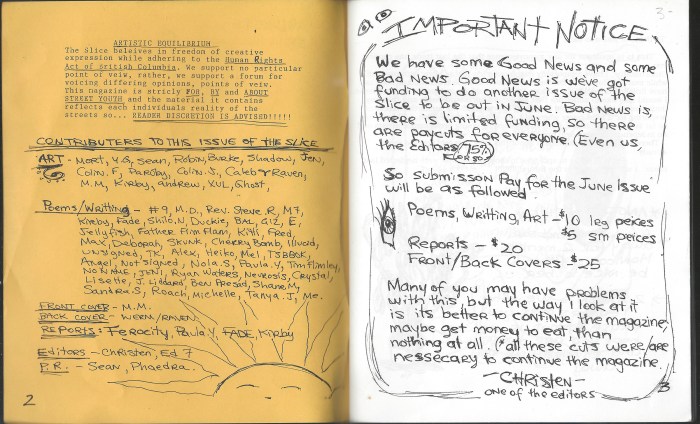 ARTISTIC EQUILIBRIUM
The Slice beleives in freedom of creative
expression while adhering to the Human Rights
Act of British Columbia. We support no particular
point of veiw, rather, we support a forum for
voicing differing opinions, points of veiw.
This magazine is stricly FOR, BY and ABOUT
STREET YOUTH and the material it contains
reflects each individuals reality of the
streets so... READER DISCRETION IS ADVISED!!!!!
CONTRIBUTERS TO THIS ISSUE OF THE SLICE
ART - MORT, Y.G, Sean, Robin, Burke, Shadow, Jen,
Colin. F, Colin. S, Caleb + Raven,
M.M, Kirby, andrew, YUL, Ghost,
Poems/Writting - #9, M.D., Rev. Steve. R, M7,
Kirby, Fade, Shilo. N, Duckie, E,
Jellyfish, Father Flim Flam, Killi, Fred,
Max, Deborah, Skunk, Cherry Bomb,
unsigned, TK, Alex, Heiko, Mel,
Angel, Not signed, Nola. S, Paula. Y, Tim Flimley,
Ryan Waters, Neurosis, Crystal,
Liselle, J. Liddard, Ben Shane, M,
Sandra. S, Roach, Michelle, Tanya. J, Me.
FRONT COVER - M.M.
BACK COVER - WERM/RAVEN
REPORTS: Ferocity, Paula. Y, FADE, Kirby
Editors - Christen, Ed 7
P.R. - Sean, Phaedra.
2
3-
IMPORTANT NOTICE
We have some Good News and some
Bad News. Good News is we've got
funding to do another issue of the
Slice to be out in JUNE. Bad News is,
there is limited funding, so there
are paycuts for everyone. (Even us,
the Editors 75%
OR SO)
So submisson Pay for the June Issue
will be as followed
Poems, Writting, Art - $10 leg peices
$5 sm peices
Reports - $20
Front/Back Covers - $25
Many of you may have problems
with this, but the way I look at it
is its better to continue the magazine,
maybe get money to eat, than
nothing at all. (*all these cuts were/are
nessecary to continue the magazine.
- CHRISTEN -
one of the editors
3